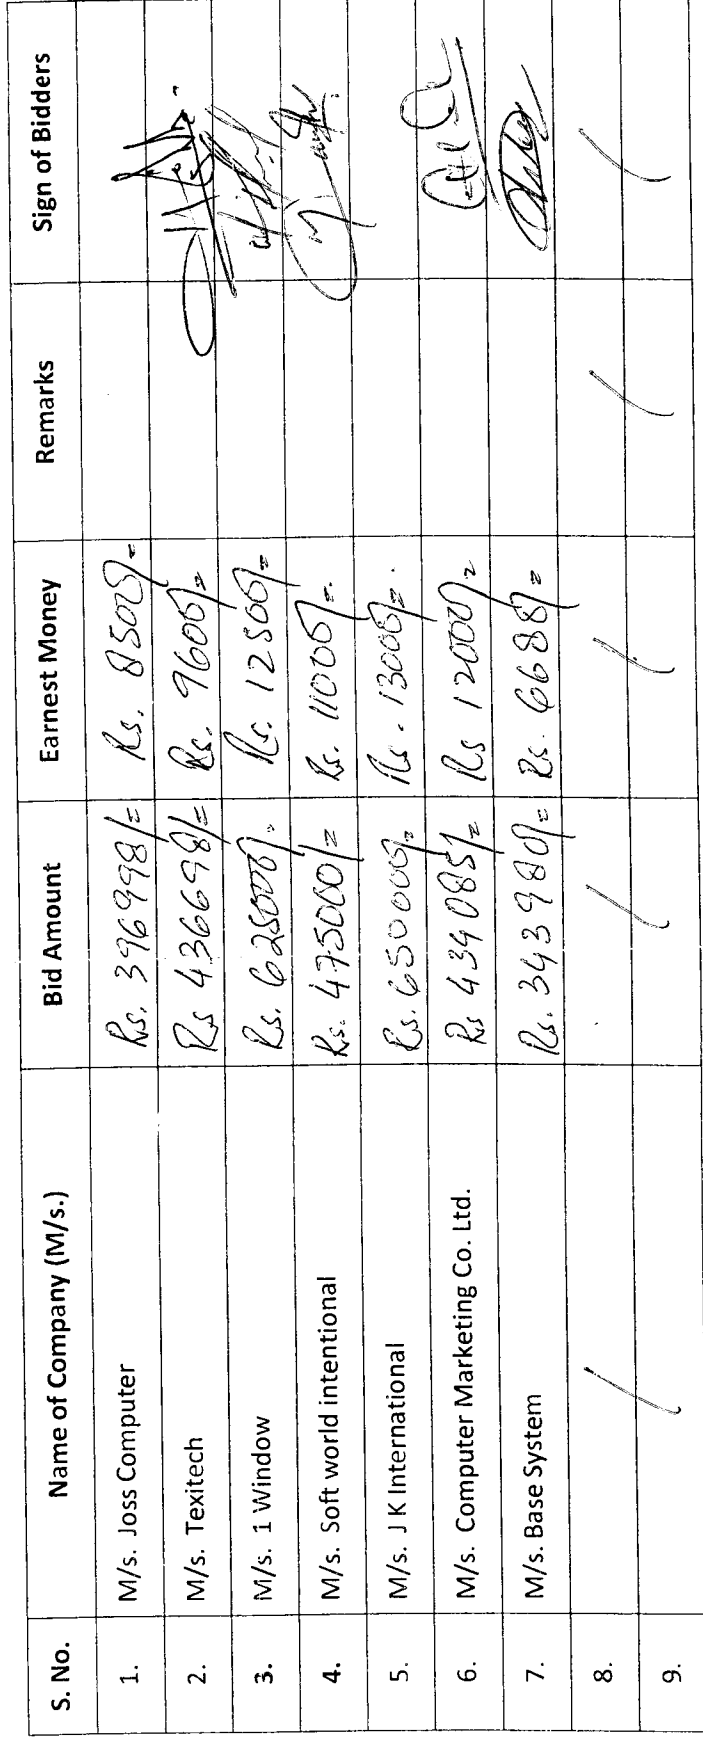 S. No. Name of Company (M/s.) Bid Amount Earnest Money Remarks Sign of Bidders
1. M/s. Joss Computer Rs. 396998/= Rs. 8500/=
2. M/s. Texitech Rs 436698/= Rs. 9600/=
3. M/s. 1 Window Rs. 625000/= Rs. 12500/=
4. M/s. Soft world intentional Rs. 475000/= Rs. 11000/=.
5. M/s. J K International Rs. 650000/= Rs. 13000/=.
6. M/s. Computer Marketing Co. Ltd. Rs 434085/= Rs 12000/=
7. M/s. Base System Rs. 343980/= Rs. 6688/=
8.
9.